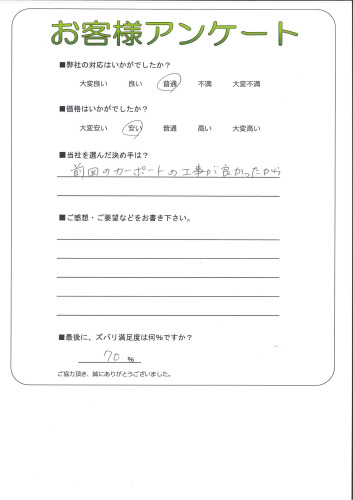 お客様アンケート
■弊社の対応はいかがでしたか？
大変良い 良い 普通 不満 大変不満
■価格はいかがでしたか？
大変安い 安い 普通 高い 大変高い
■当社を選んだ決め手は？
前回のカーポートの工事が良かったから
■ご感想・ご要望などをお書き下さい。
■最後に、ズバリ満足度は何%ですか？
70 %
ご協力頂き、誠にありがとうございました。